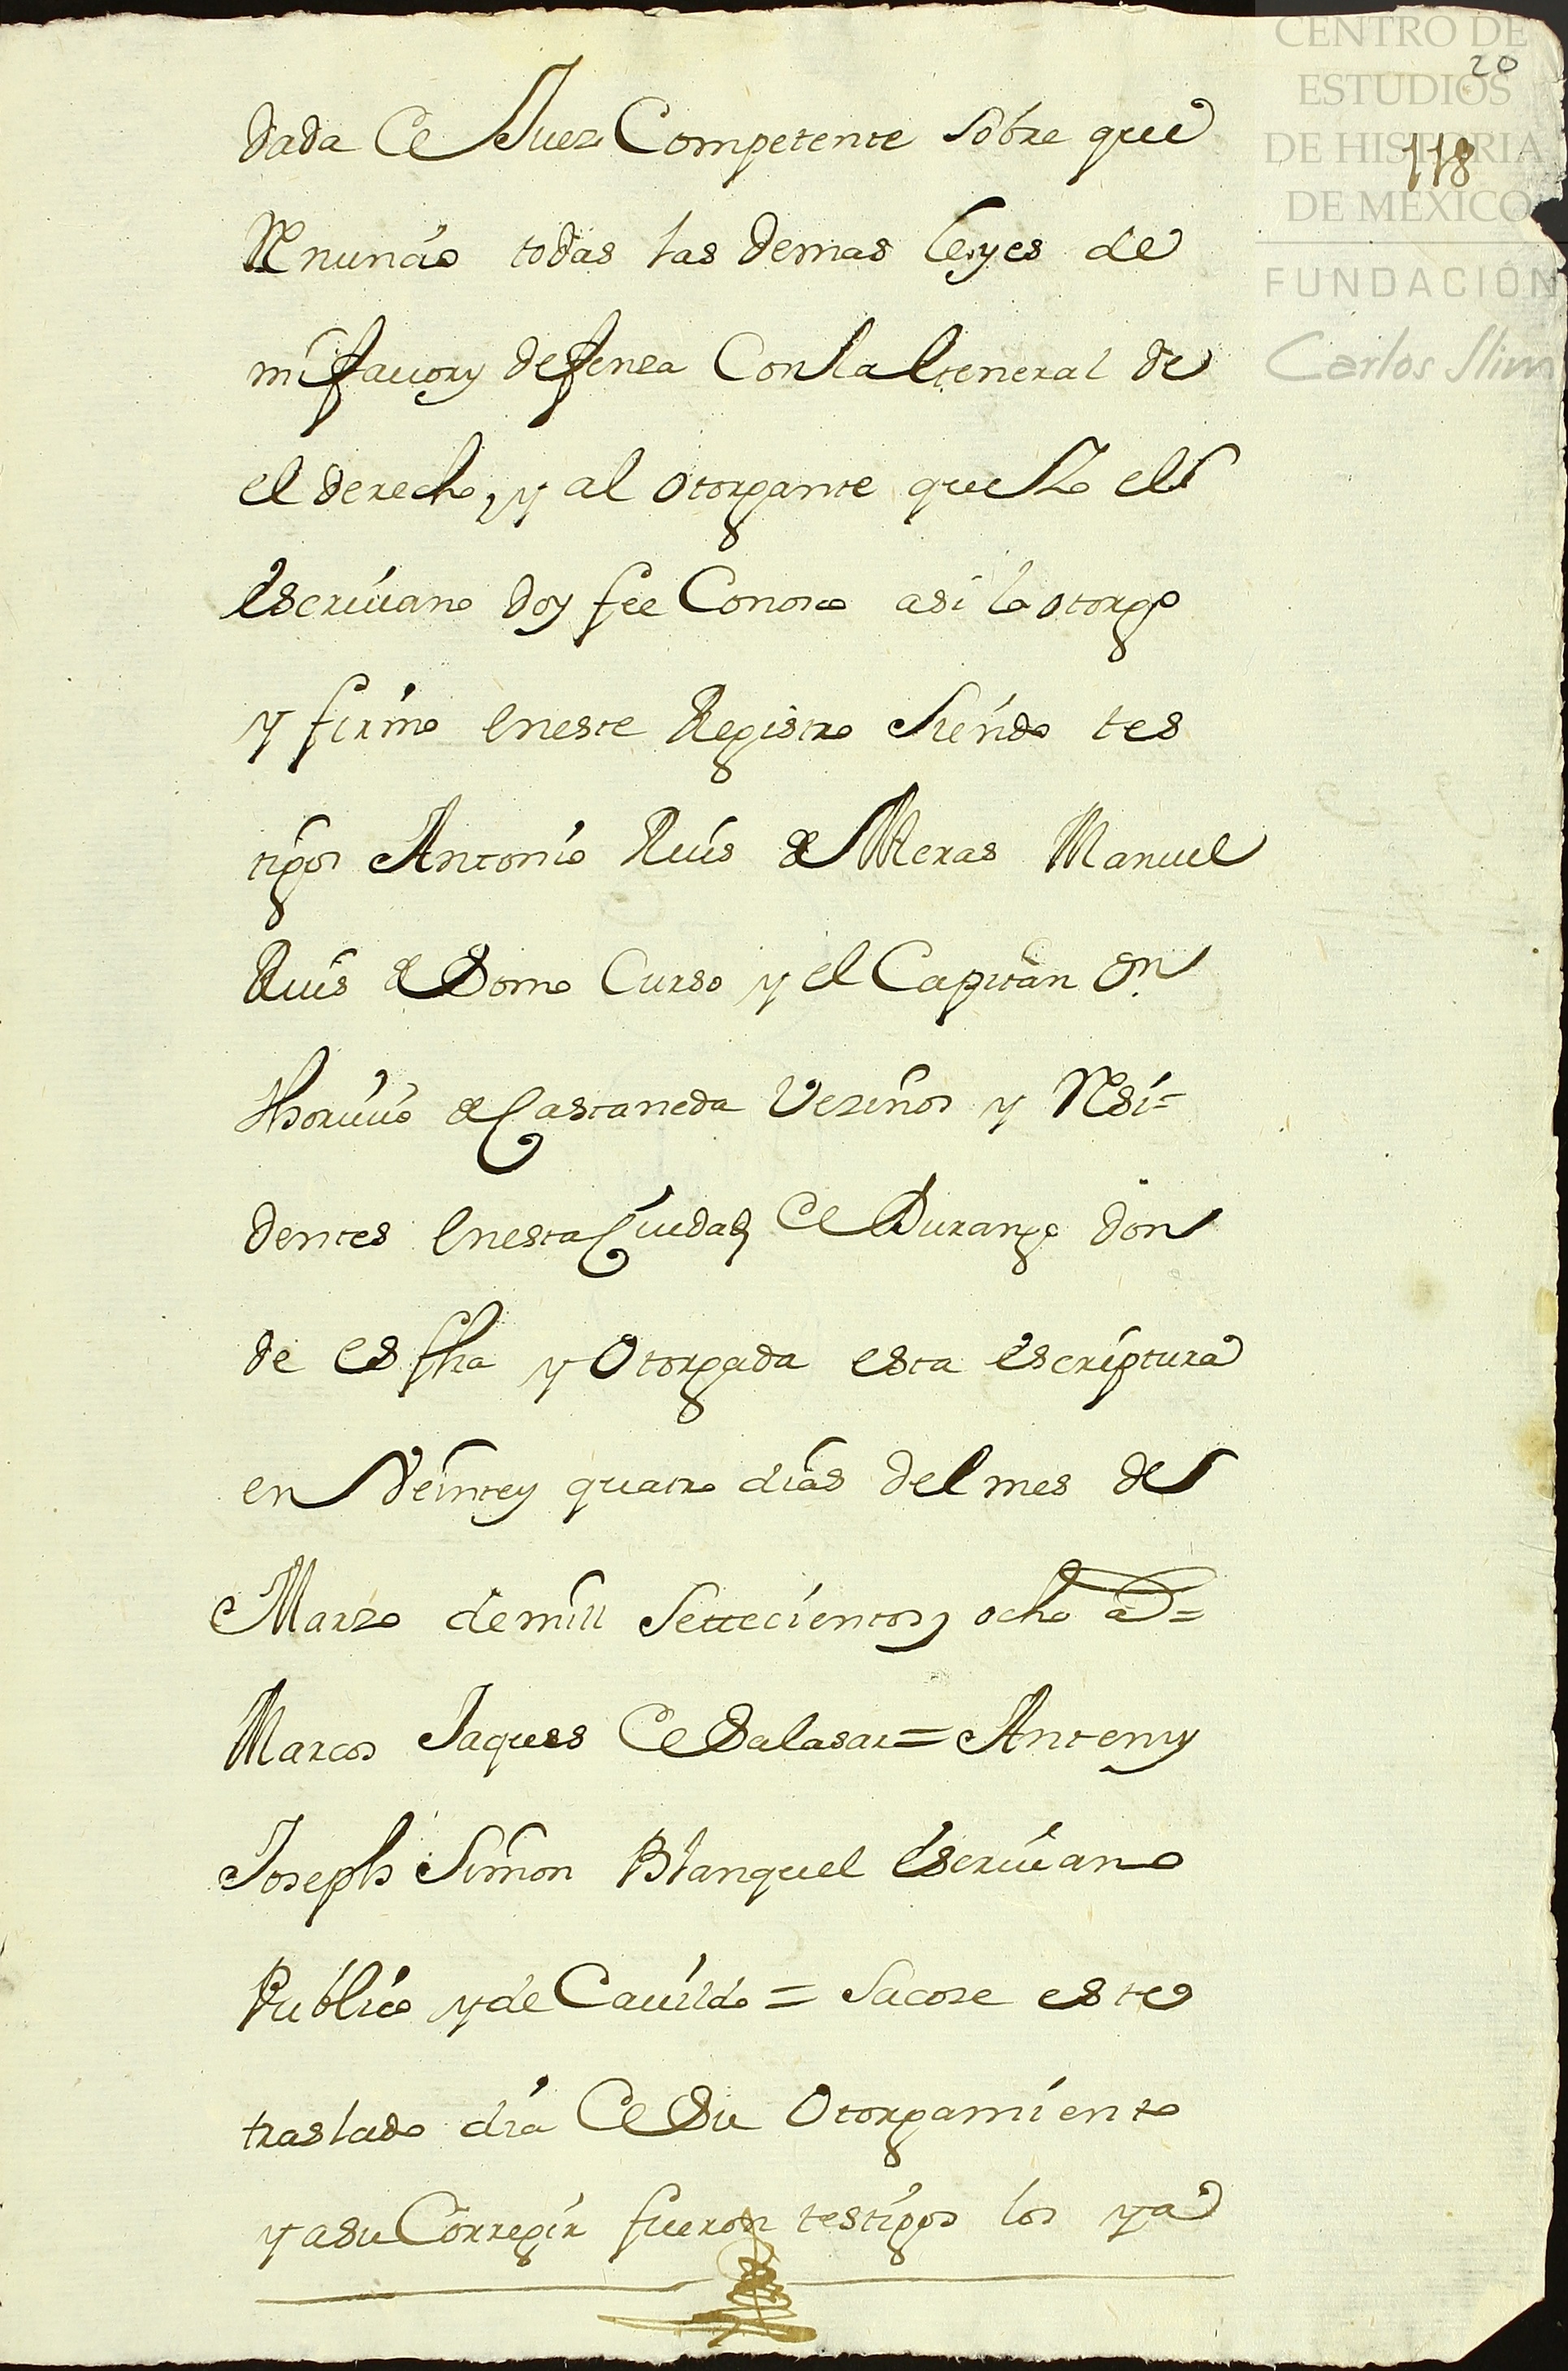 CENTRO DE
20
ESTUDIOS
DE HISTORIA
118
DE MÉXICO
FUNDACIÓN
Carlos Slim
dada de Juez Competente sobre que
Renuncio todas las demas leyes de
mi fauor y defenza Con la General de
el derecho, y al otorgante que Yo el
escriuano doy fee Conosco asi lo otorgo
y firmo en este Registro siendo tes
tigos Antonio Ruis de Meras Manuel
Ruis de Somo Curso y el Capitan Dn.
Thoriuio de Castaneda Vezinos y Resi=
dentes en esta Ciudad de Durango don
de es fha y Otorgada esta escriptura
en Veinte y quatro dias del mes de
Marzo de mill Settecientos y ocho as=
Marcos Jaques de Salasar = Ante my
Joseph Simon Blanquel escriuano
Publico y de Cauildo = Sacose este
traslado dia de su Otorgamiento
y a su Corregir fueron testigos los ya